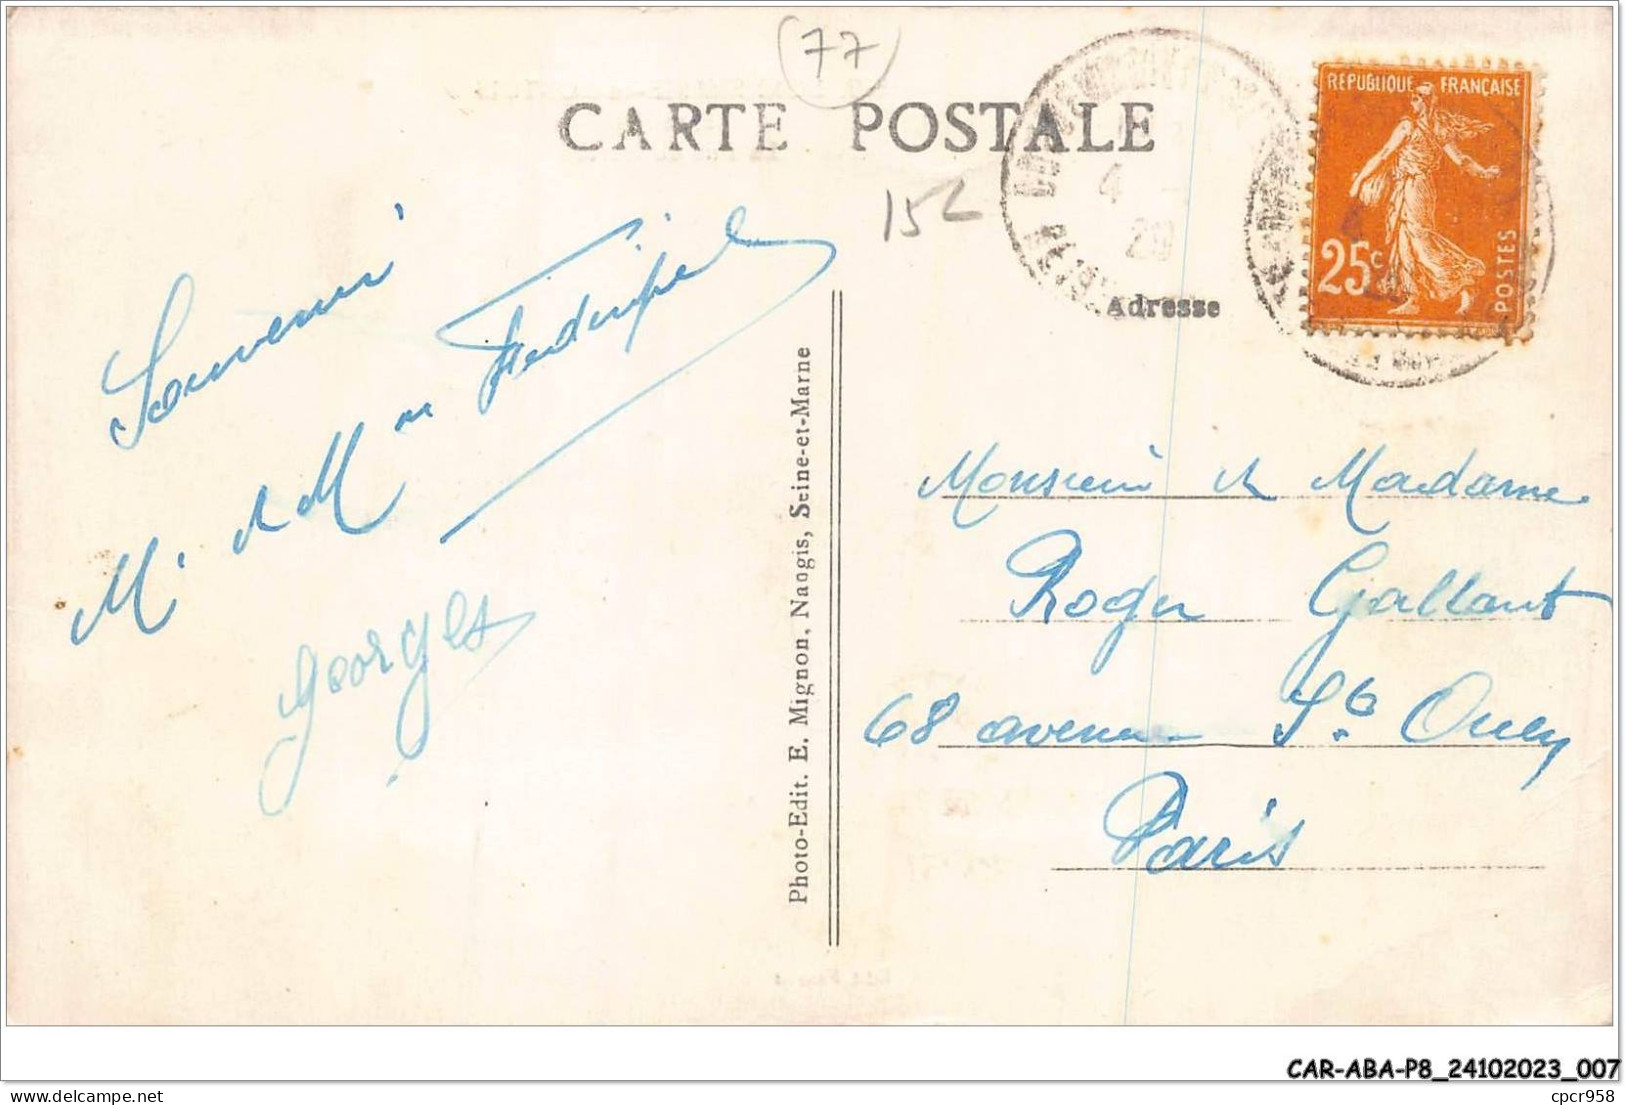 77
CARTE POSTALE
152
RÉPUBLIQUE FRANÇAISE
25c
POSTES
4
Adresse
Souvenir
M. et Mme
georges
Photo-Edit. E. Mignon, Nangis, Seine-et-Marne
Monsieur et Madame
Roger Gallant
68 avenue St Ouen
Paris
CAR-ABA-P8_24102023_007
cpcr958